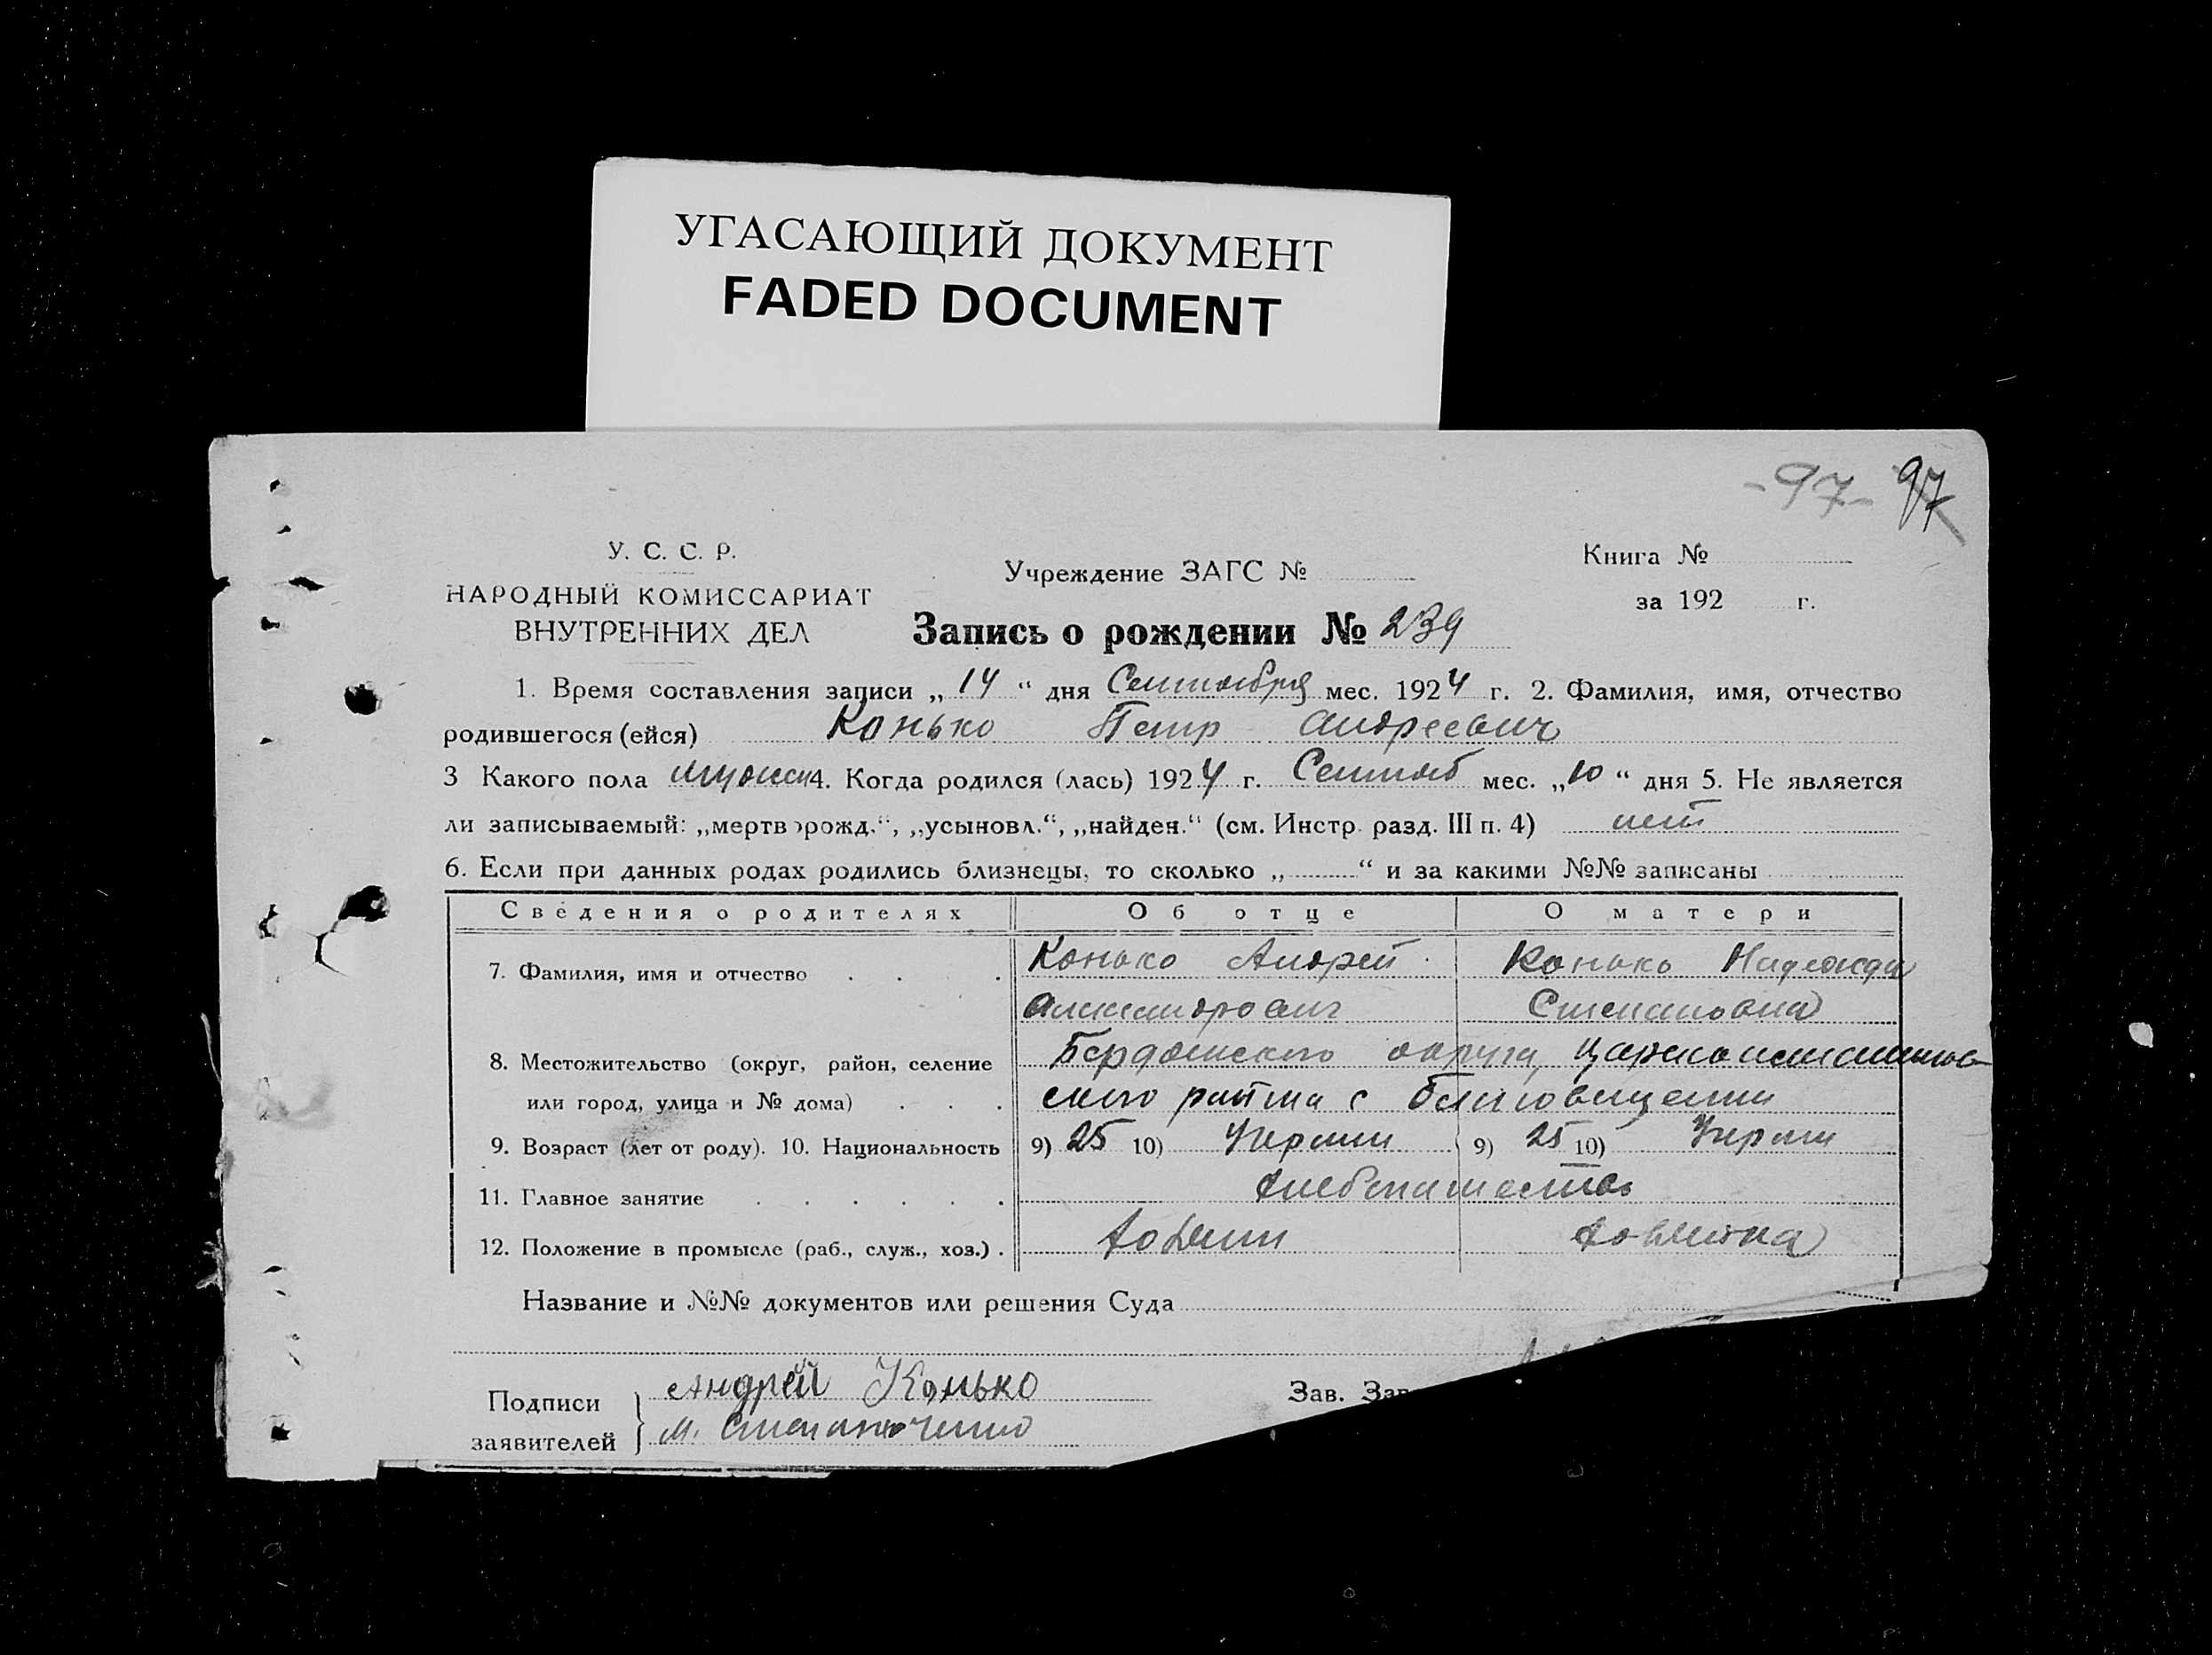 УГАСАЮЩИЙ ДОКУМЕНТ
FADED DOCUMENT
-97- 97
У. С. С. Р.
НАРОДНЫЙ КОМИССАРИАТ
ВНУТРЕННИХ ДЕЛ
Учреждение ЗАГС №
Книга №
за 192 г.
Запись о рождении № 239
1. Время составления записи „ 14 “ дня Сентября мес. 1924 г. 2. Фамилия, имя, отчество
родившегося (ейся) Конько Петр Андреевич
3 Какого пола мужск 4. Когда родился (лась) 1924 г. Сентяб мес. „10“ дня 5. Не является
ли записываемый: „мертворожд.“, „усыновл.“, „найден.“ (см. Инстр. разд. III п. 4) нет
6. Если при данных родах родились близнецы, то сколько „ “ и за какими №№ записаны
Сведения о родителях Об отце О матери
7. Фамилия, имя и отчество . . . Конько Андрей Конько Надежда
Александрович Степановна
8. Местожительство (округ, район, селение Бердянского округа, Цареконстантинов-
или город, улица и № дома) . . . ского района с Благовещенки
9. Возраст (лет от роду). 10. Национальность 9) 25 10) Украин 9) 25 10) Украин
11. Главное занятие . . . . . . хлебопашество
12. Положение в промысле (раб., служ., хоз.) . хозяин хозяйка
Название и №№ документов или решения Суда
Подписи
заявителей
Андрей Конько
М.
Зав. Заг